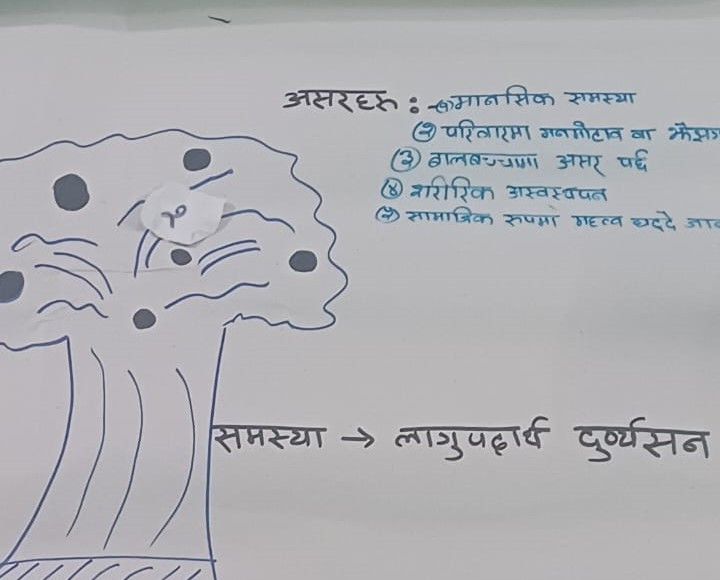 असरहरु : - ① मानसिक समस्या
② परिवारमा मनमोटाव वा
③ बालबच्चामा असर पर्छ
④ शारीरिक अस्वस्थपन
⑤ सामाजिक रुपमा महत्व घट्दै
२
समस्या → लागुपदार्थ दुर्व्यसन